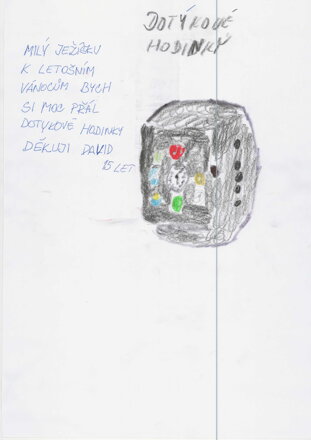 DOTÝKOVÉ
HODINKY
MILÝ JEŽÍŠKU
K LETOŠNÍM
VÁNOCŮM BYCH
SI MOC PŘÁL
DOTYKOVÉ HODINKY
DĚKUJI DAVID
15 LET